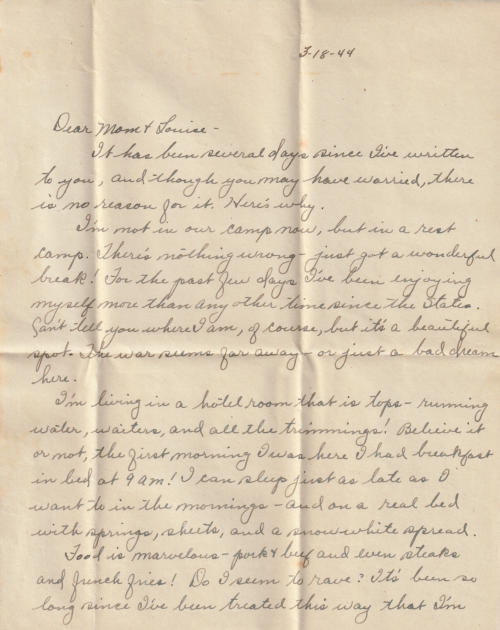 3-18-44
Dear Mom & Louise -
It has been several days since I've written
to you, and though you may have worried, there
is no reason for it. Here's why.
I'm not in our camp now, but in a rest
camp. There's nothing wrong - just got a wonderful
break! For the past few days I've been enjoying
myself more than any other time since the States.
Can't tell you where I am, of course, but it's a beautiful
spot. The war seems far away - or just a bad dream
here.
I'm living in a hotel room that is tops - running
water, waiters, and all the trimmings! Believe it
or not, the first morning I was here I had breakfast
in bed at 9 am! I can sleep just as late as I
want to in the mornings - and on a real bed
with springs, sheets, and a snow white spread.
Food is marvelous - pork & beef and even steaks
and french fries! Do I seem to rave? It's been so
long since I've been treated this way that I'm